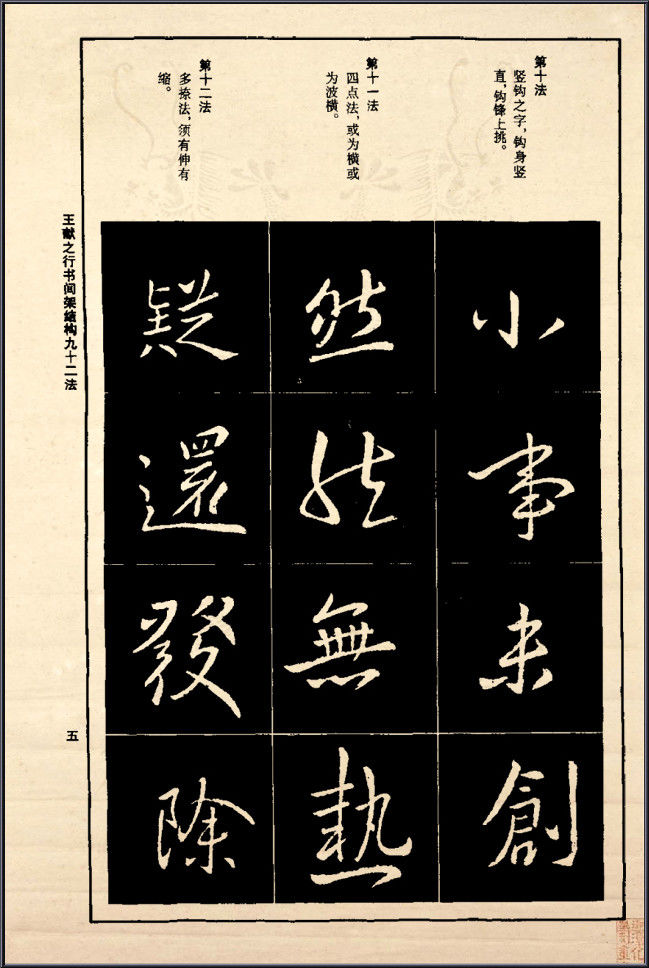 第十法
竖钩之字，钩身竖
直，钩锋上挑。
第十一法
四点法，或为横或
为波横。
第十二法
多捺法，须有伸有
缩。
小
事
未
創
然
無
熱
疑
還
發
除
王献之行书间架结构九十二法
五